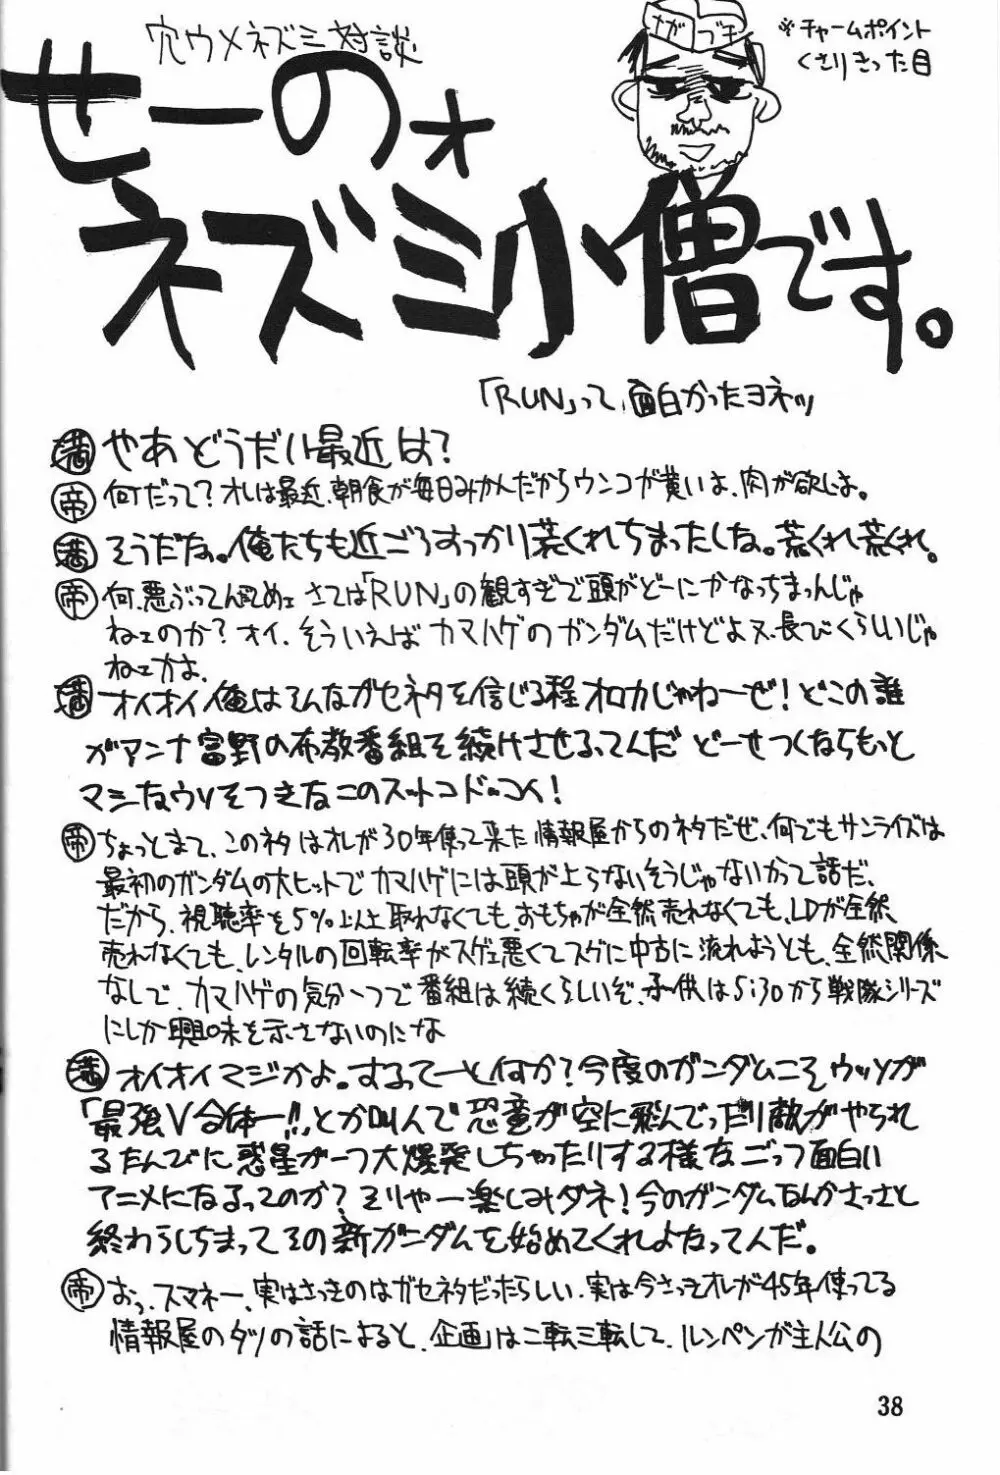 穴ウメネズミ対談
せーのォ
ネズミ小僧です。
ながブチ
※チャームポイント
くさりきった目
「RUN」って、面白かったヨネッ
満 やあ どうだい最近は?
帝 何だって? オレは最近、朝食が毎日みかんだからウンコが黄いよ、肉が欲しいよ。
満 そうだな。俺たちも近ごろすっかり荒くれちまったしな。荒くれ荒くれ。
帝 何、悪ぶってんだてめェ さては「RUN」の観すぎで頭がどーにかなっちまったんじゃ
ねェのか? オイ、そういえばカマハゲのガンダムだけどよ又、長びくらしいじゃ
ねェかよ。
満 オイオイ俺はそんなガセネタを信じる程オロカじゃねーぜ! どこの誰
がアンナ富野の布教番組を続けさせるってんだ どーせつくならもっと
マシなウソをつきなこのスットコドッコイ!
帝 ちょっとまて、このネタはオレが30年使って来た情報屋からのネタだぜ、何でもサンライズは
最初のガンダムの大ヒットでカマハゲには頭が上らないそうじゃないかって話だ、
だから、視聴率を5%以上取れなくても、おもちゃが全然売れなくても、LDが全然
売れなくても、レンタルの回転率がスゲェ悪くてスグに中古に流れようとも、全然関係
なしで、カマハゲの気分一つで番組は続くらしいぞ、子供は5:30から戦隊シリーズ
にしか興味を示さないのにな
満 オイオイマジかよ。するってーと何か? 今度のガンダムこそウッソが
「最強V合体ー!!」とか叫んで恐竜が空に飛んでったり敵がやられ
るたんびに惑星が一つ大爆発しちゃったりする様なごっつ面白い
アニメになるってのか? そりゃー楽しみダネ! 今のガンダムなんかさっさと
終わらしちまってその新ガンダムを始めてくれよなってんだ。
帝 おっ、スマネー、実はさっきのはガセネタだったらしい、実は今さっきオレが45年使ってる
情報屋のダツの話によると、企画は二転三転して、ルンペンが主人公の
38